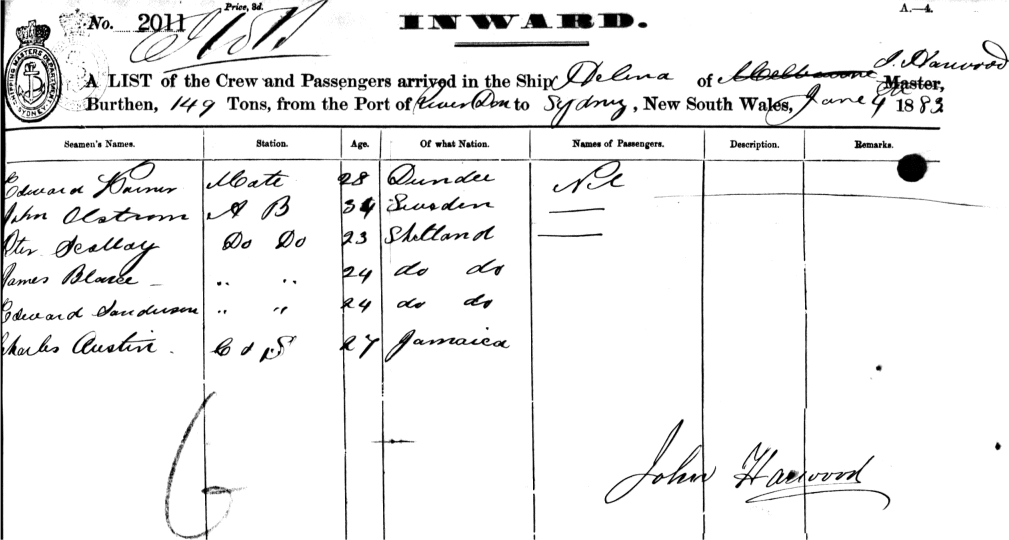 Price, 3d.
A.—4.
No. 2011
INWARD.
SHIPPING MASTERS DEPARTMENT SYDNEY
J. Harwood
A LIST of the Crew and Passengers arrived in the Ship Helena of Melbourne Master,
Burthen, 149 Tons, from the Port of River Don to Sydney, New South Wales, June 4th 1883
Seamen's Names. Station. Age. Of what Nation. Names of Passengers. Description. Remarks.
Edward Mate 28 Dundee Nil
John Olstrom A B 34 Sweden
Peter Scollay Do Do 23 Shetland
James 〃 〃 24 do do
Edward Sanderson 〃 〃 24 do do
Charles Austin. C & S 27 Jamaica
6
John Harwood